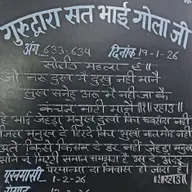 गुरूद्वारा सत भाई गोला जी
अंग 633,634 दिनांक 19-1-26
सोरठि महला ९॥
जो नर दुख मै दुखु नही मानै
सुख सनेह अरु भै नही जा कै
कंचन माटी मानै॥१॥रहाउ॥
हे भाई जेहड़ा मनुख दुखां विच घबरांदा नहीं
जिस मनुख दे हिरदे विच सुखां नाल मोह नहीं
अते किसे किसम दे डर नहीं जेहड़ा मनुख
सोने नूं मिट्टी समान समझदा है उस दे अंदर
परमात्मा दा निवास हो जांदा है।
पूरनमासी 1-2-26